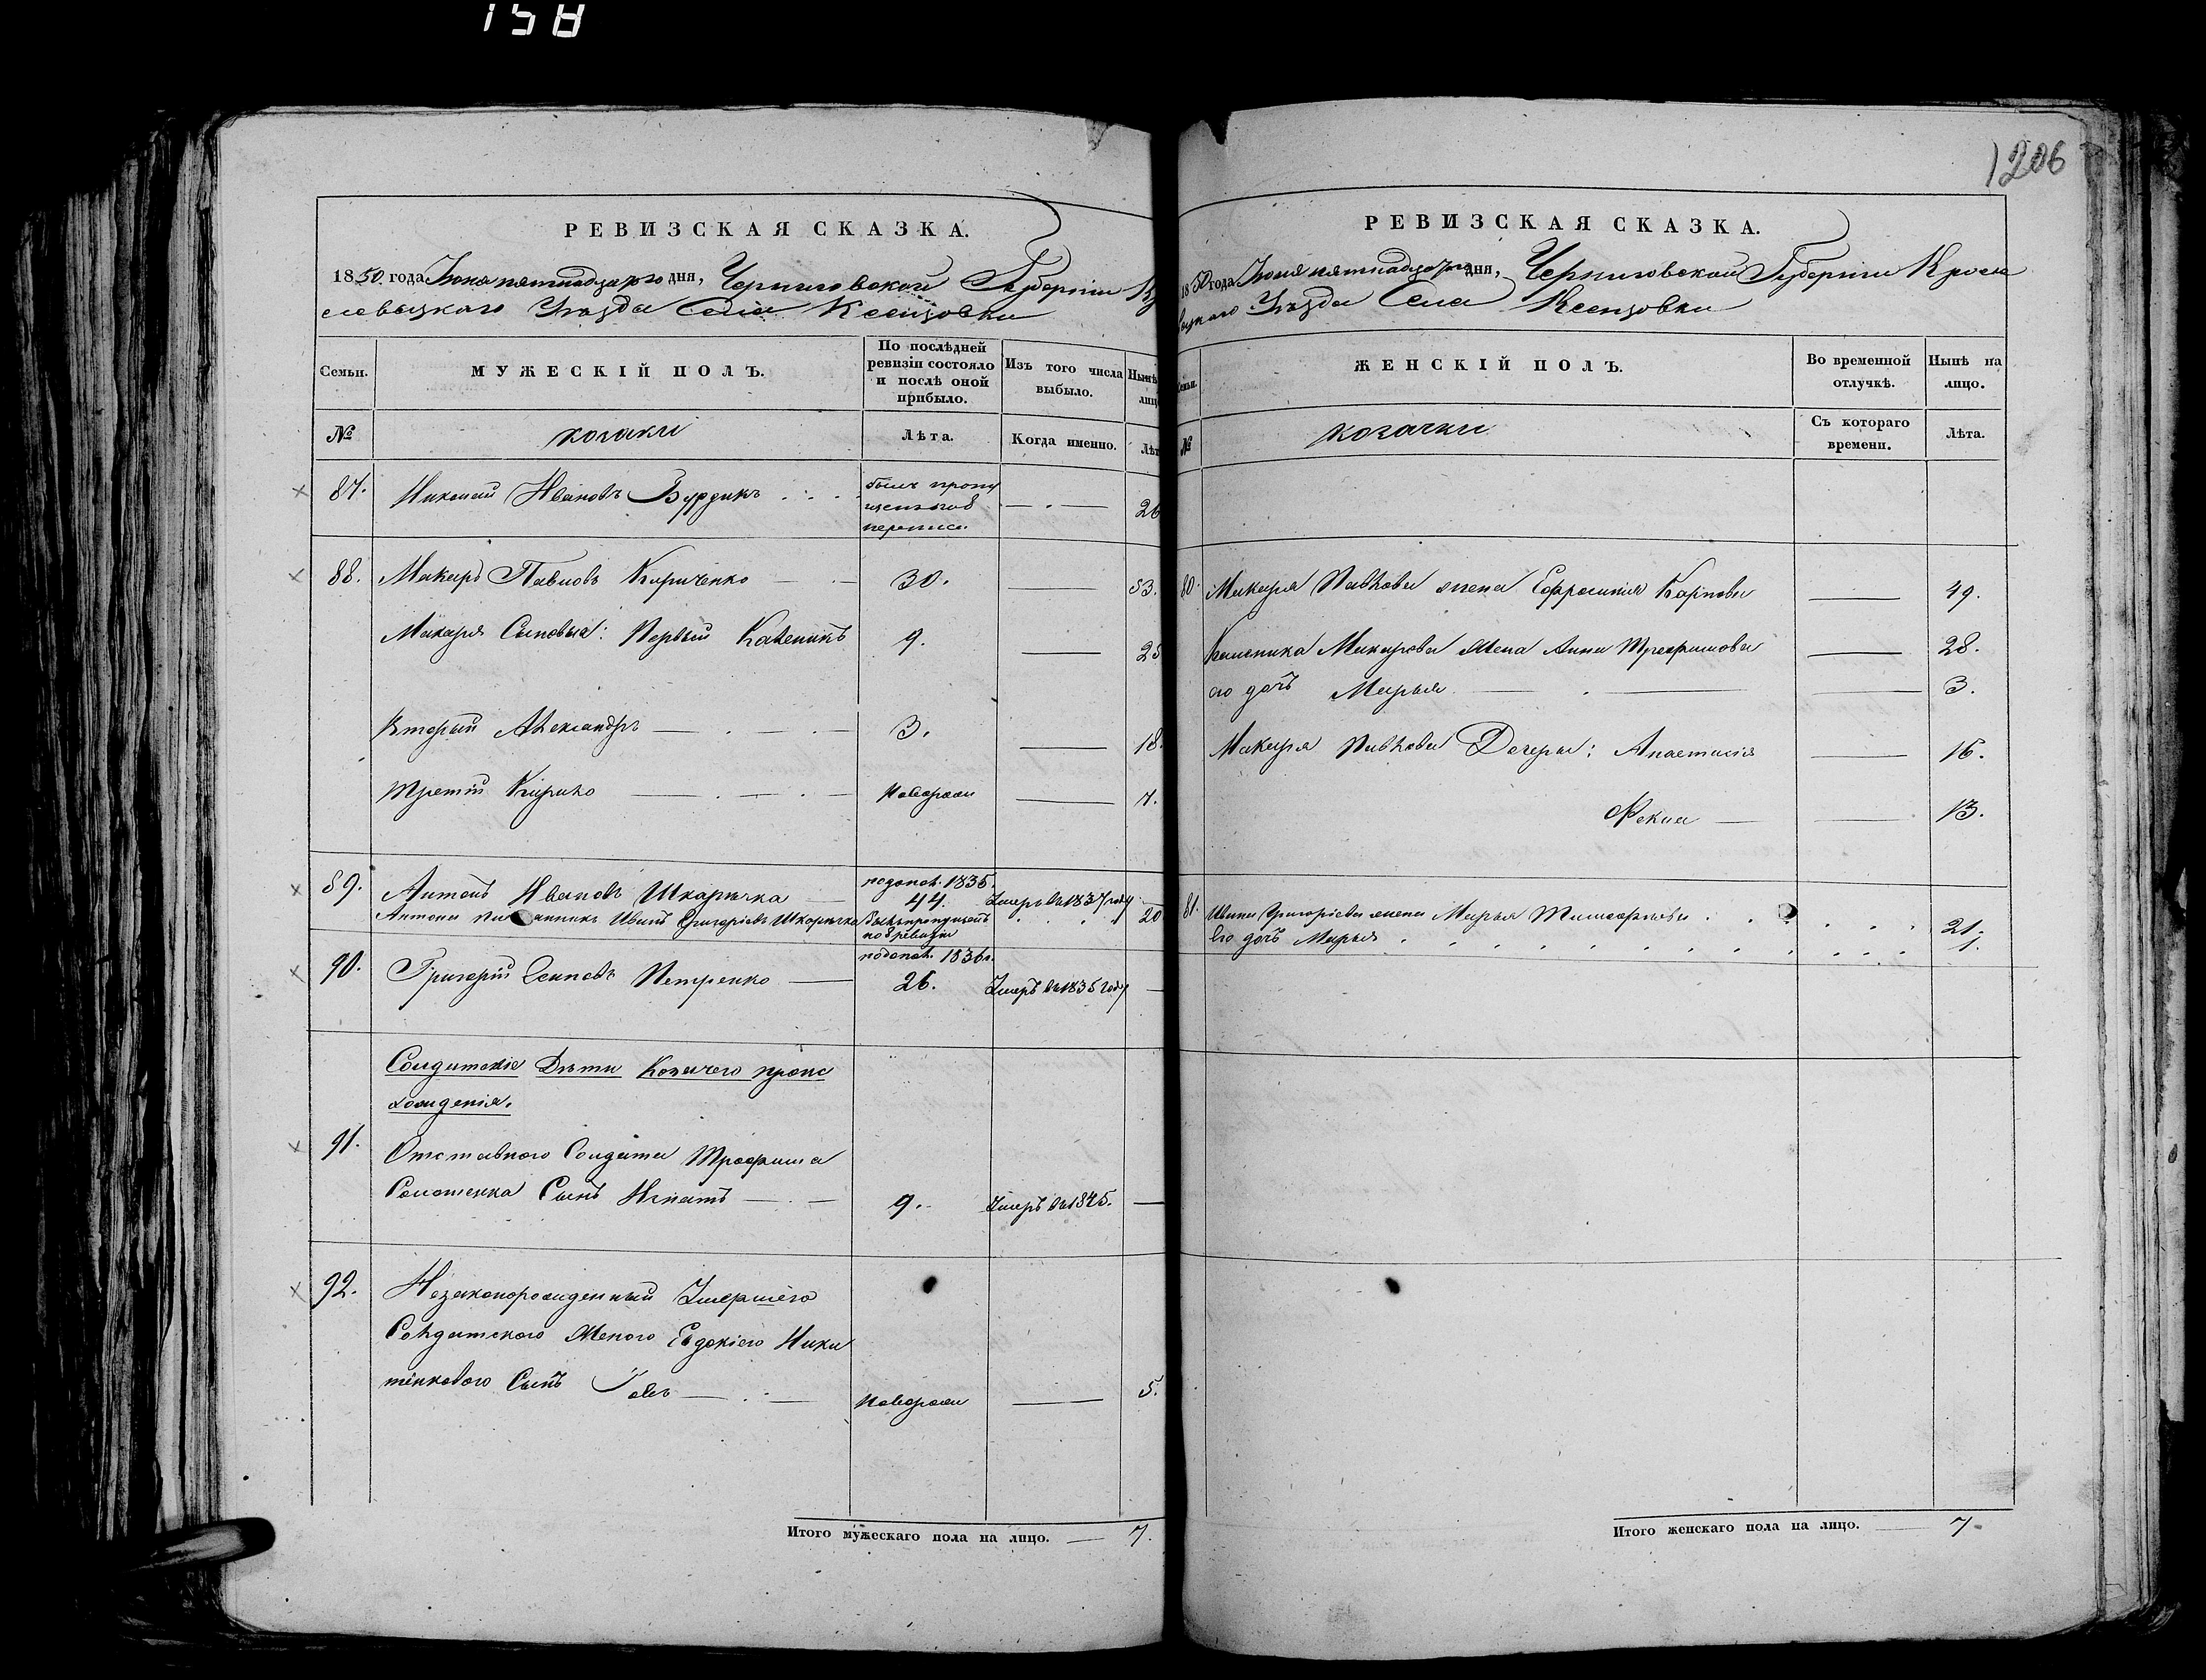 158
1206
РЕВИЗСКАЯ СКАЗКА.
1850 года Іюня пятнадцатого дня, Черниговской Губерніи К
левецкаго Уѣзда Села Ксензовки
Семьи.
МУЖЕСКІЙ ПОЛЪ.
По послѣдней ревизіи состояло и послѣ оной прибыло.
Изъ того числа выбыло.
Нынѣ лицо
№
козаки
Лѣта.
Когда именно.
Лѣт
87. Николай Ивановъ Бурдикъ
былъ пропу
щенъ по 8
переписи
26
88. Макаръ Павловъ Кириченко 30. 53.
Макара Сыновья: Первый Каленикъ 9. 25
Вторый Александръ 3. 18.
Третій Кирило новорож 7.
89. Антонъ Ивановъ Шкарычка по допол. 1835. 44. Умеръ въ 1837 году
Антона племянникъ Иванъ Григоріевъ Шкарычка былъ пропущенъ по 8 ревизіи 20
90. Григорій Осиповъ Петренко по допол. 1836 г. 26. Умеръ въ 1835 году —
Солдатскіе Дѣти Козачего проис
хожденія.
91. Отставного Солдата Трофима
Сын Игнатъ 9. Умеръ въ 1845. —
92. Незаконорожденный Умершего
Солдатского Женого Евдокіего Ники
тенкового Сынъ новорож 5.
Итого мужескаго пола на лицо. — 7.
РЕВИЗСКАЯ СКАЗКА.
1850 года Іюня пятнадцатого дня, Черниговской Губерніи Кроле
вецкаго Уѣзда Села Ксензовки
Семьи.
ЖЕНСКІЙ ПОЛЪ.
Во временной отлучкѣ.
Нынѣ на лицо.
№
козачки
Съ котораго времени.
Лѣта.
80. Макара Павлова жена Ефросинія Карпова 49.
Калсника Макарова жена Анна Трофимова 28.
его дочь Марья 3.
Макара Павлова Дочеры: Анастасія 16.
Фекла 13.
81. Ивана Григоріева жена Марья Тимофѣева 21.
Его дочь Марья 1.
Итого женскаго пола на лицо. — 7.